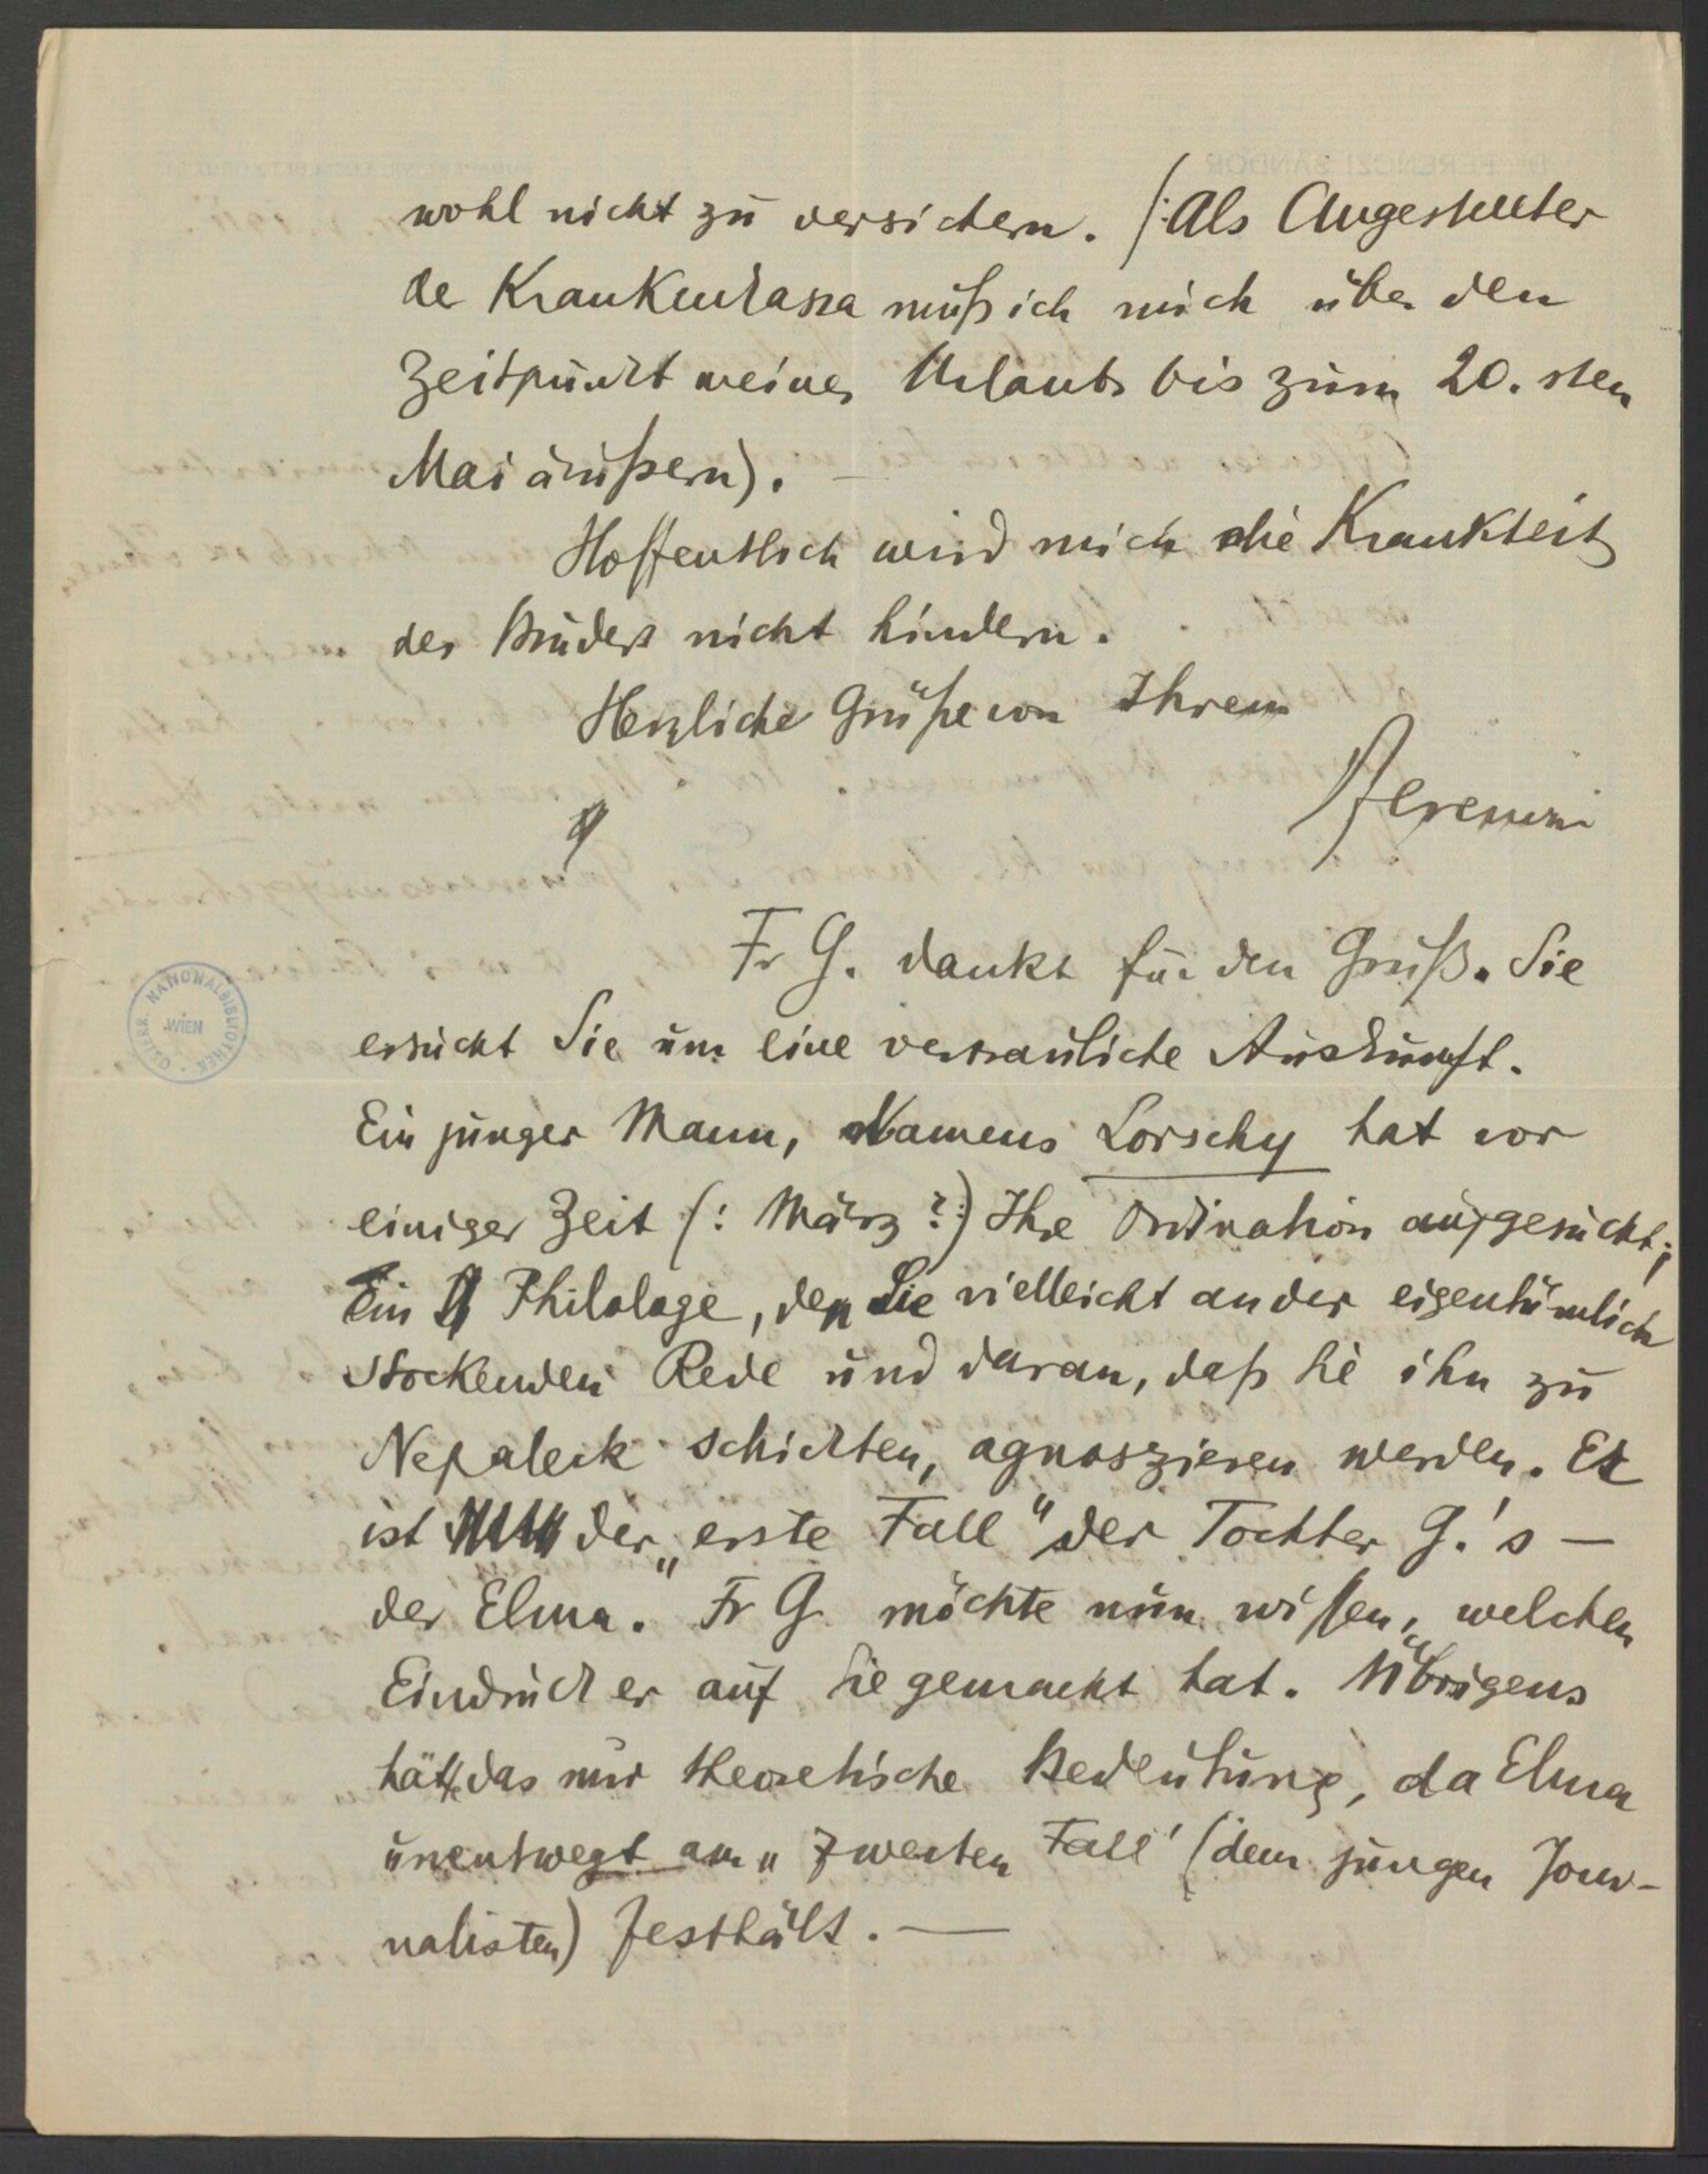 wohl nicht zu versichern. (: Als Angestellter
der Krankenkassa muß ich mich über den
Zeitpunkt meines Urlaubs bis zum 20. sten
Mai äußern). —
Hoffentlich wird mich die Krankheit
des Bruders nicht hindern.
Herzliche Grüße von Ihrem
Ferenczi
Fr G. dankt für den Gruß. Sie
ersucht Sie um eine vertrauliche Auskunft.
Ein junger Mann, Namens Lorschy hat vor
einiger Zeit (: März ? :) Ihre Ordination aufgesucht;
Ein Philologe, den Sie vielleicht an der eigentümlich
stockenden Rede und daran, daß Sie ihn zu
Nepaleck schickten, agnoszieren werden. Er
ist der „erste Fall" der Tochter G.'s —
der Elma. Fr G. möchte nun wissen, welchen
Eindruck er auf Sie gemacht hat. Übrigens
hätte das nur theoretische Bedeutung, da Elma
unentwegt am „zweiten Fall' (dem jungen Jour-
nalisten) festhält. —
ÖSTERR. NATIONALBIBLIOTHEK
WIEN